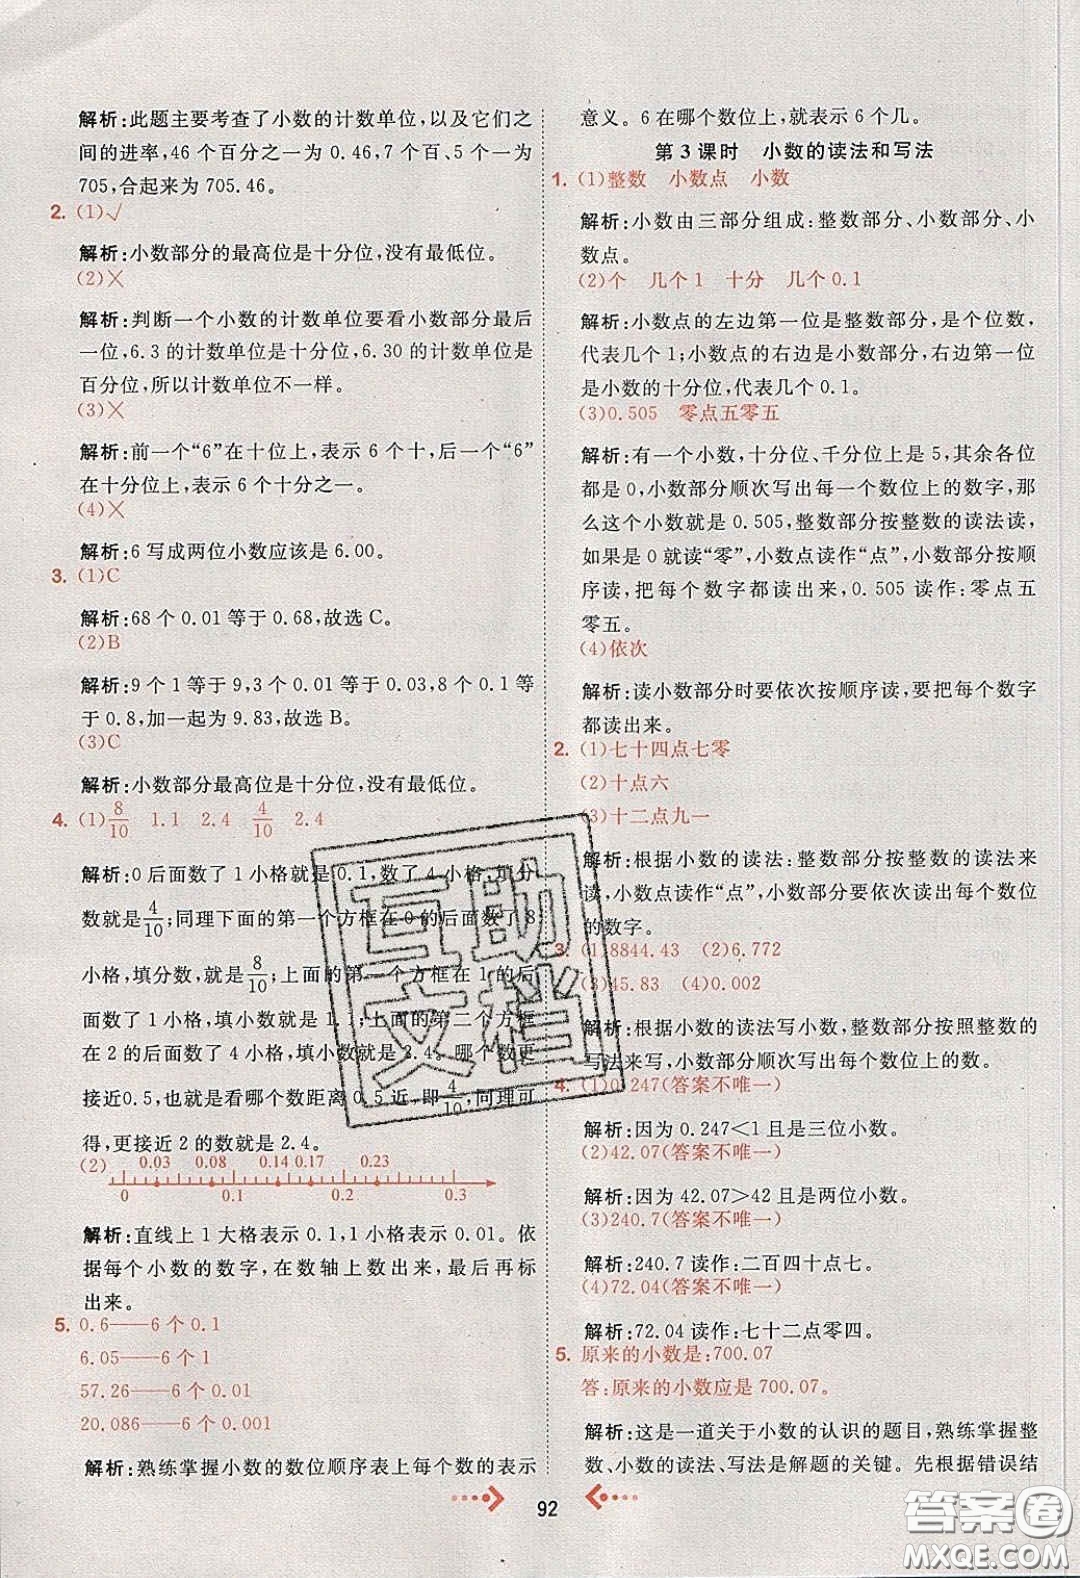 解析:此题主要考查了小数的计数单位,以及它们之
间的进率,46 个百分之一为 0.46,7 个百、5 个一为
705,合起来为 705.46。
2. (1)√
解析:小数部分的最高位是十分位,没有最低位。
(2)×
解析:判断一个小数的计数单位要看小数部分最后
一位,6.3 的计数单位是十分位,6.30 的计数单位是
百分位,所以计数单位不一样。
(3)×
解析:前一个“6”在十位上,表示 6 个十,后一个“6”
在十分位上,表示 6 个十分之一。
(4)×
解析:6 写成两位小数应该是 6.00。
3. (1)C
解析:68 个 0.01 等于 0.68,故选 C。
(2)B
解析:9 个 1 等于 9,3 个 0.01 等于 0.03,8 个 0.1 等
于 0.8,加一起为 9.83,故选 B。
(3)C
解析:小数部分最高位是十分位,没有最低位。
4. (1)8/10 1.1 2.4 4/10 2.4
解析:0 后面数了 1 小格就是 0.1,数了 4 小格,填分
数就是4/10;同理下面的第一个方框在 0 的后面数了 8
小格,填分数,就是8/10;上面的第二个方框在 1 的后
面数了 1 小格,填小数就是 1.1;上面的第二个方框
在 2 的后面数了 4 小格,填小数就是 2.4。哪个数更
接近0.5,也就是看哪个数距离 0.5 近,即4/10,同理可
得,更接近 2 的数就是 2.4。
(2) 0.03 0.08 0.14 0.17 0.23
0 0.1 0.2 0.3
解析:直线上 1 大格表示 0.1,1 小格表示 0.01。依
据每个小数的数字,在数轴上数出来,最后再标
出来。
5. 0.6——6 个 0.1
6.05——6 个 1
57.26——6 个 0.01
20.086——6 个 0.001
解析:熟练掌握小数的数位顺序表上每个数的表示
意义。6 在哪个数位上,就表示 6 个几。
第 3 课时 小数的读法和写法
1. (1)整数 小数点 小数
解析:小数由三部分组成:整数部分、小数部分、小
数点。
(2)个 几个 1 十分 几个 0.1
解析:小数点的左边第一位是整数部分,是个位数,
代表几个 1;小数点的右边是小数部分,右边第一位
是小数的十分位,代表几个 0.1。
(3)0.505 零点五零五
解析:有一个小数,十分位、千分位上是 5,其余各位
都是 0,小数部分顺次写出每一个数位上的数字,那
么这个小数就是 0.505,整数部分按整数的读法读,
如果是 0 就读“零”,小数点读作“点”,小数部分按顺
序读,把每个数字都读出来,0.505 读作:零点五
零五。
(4)依次
解析:读小数部分时要依次按顺序读,要把每个数字
都读出来。
2. (1)七十四点七零
(2)十点六
(3)十二点九一
解析:根据小数的读法:整数部分按整数的读法来
读,小数点读作“点”,小数部分要依次读出每个数位
的数字。
3. (1)8844.43 (2)6.772
(3)45.83 (4)0.002
解析:根据小数的读法写小数,整数部分按照整数的
写法来写,小数部分顺次写出每个数位上的数。
4. (1)0.247(答案不唯一)
解析:因为 0.247<1 且是三位小数。
(2)42.07(答案不唯一)
解析:因为 42.07>42 且是两位小数。
(3)240.7(答案不唯一)
解析:240.7 读作:二百四十点七。
(4)72.04(答案不唯一)
解析:72.04 读作:七十二点零四。
5. 原来的小数是:700.07
答:原来的小数应是 700.07。
解析:这是一道关于小数的认识的题目,熟练掌握整
数、小数的读法、写法是解题的关键。先根据错误结
92
互助
文档
答案圈
MXQE.COM